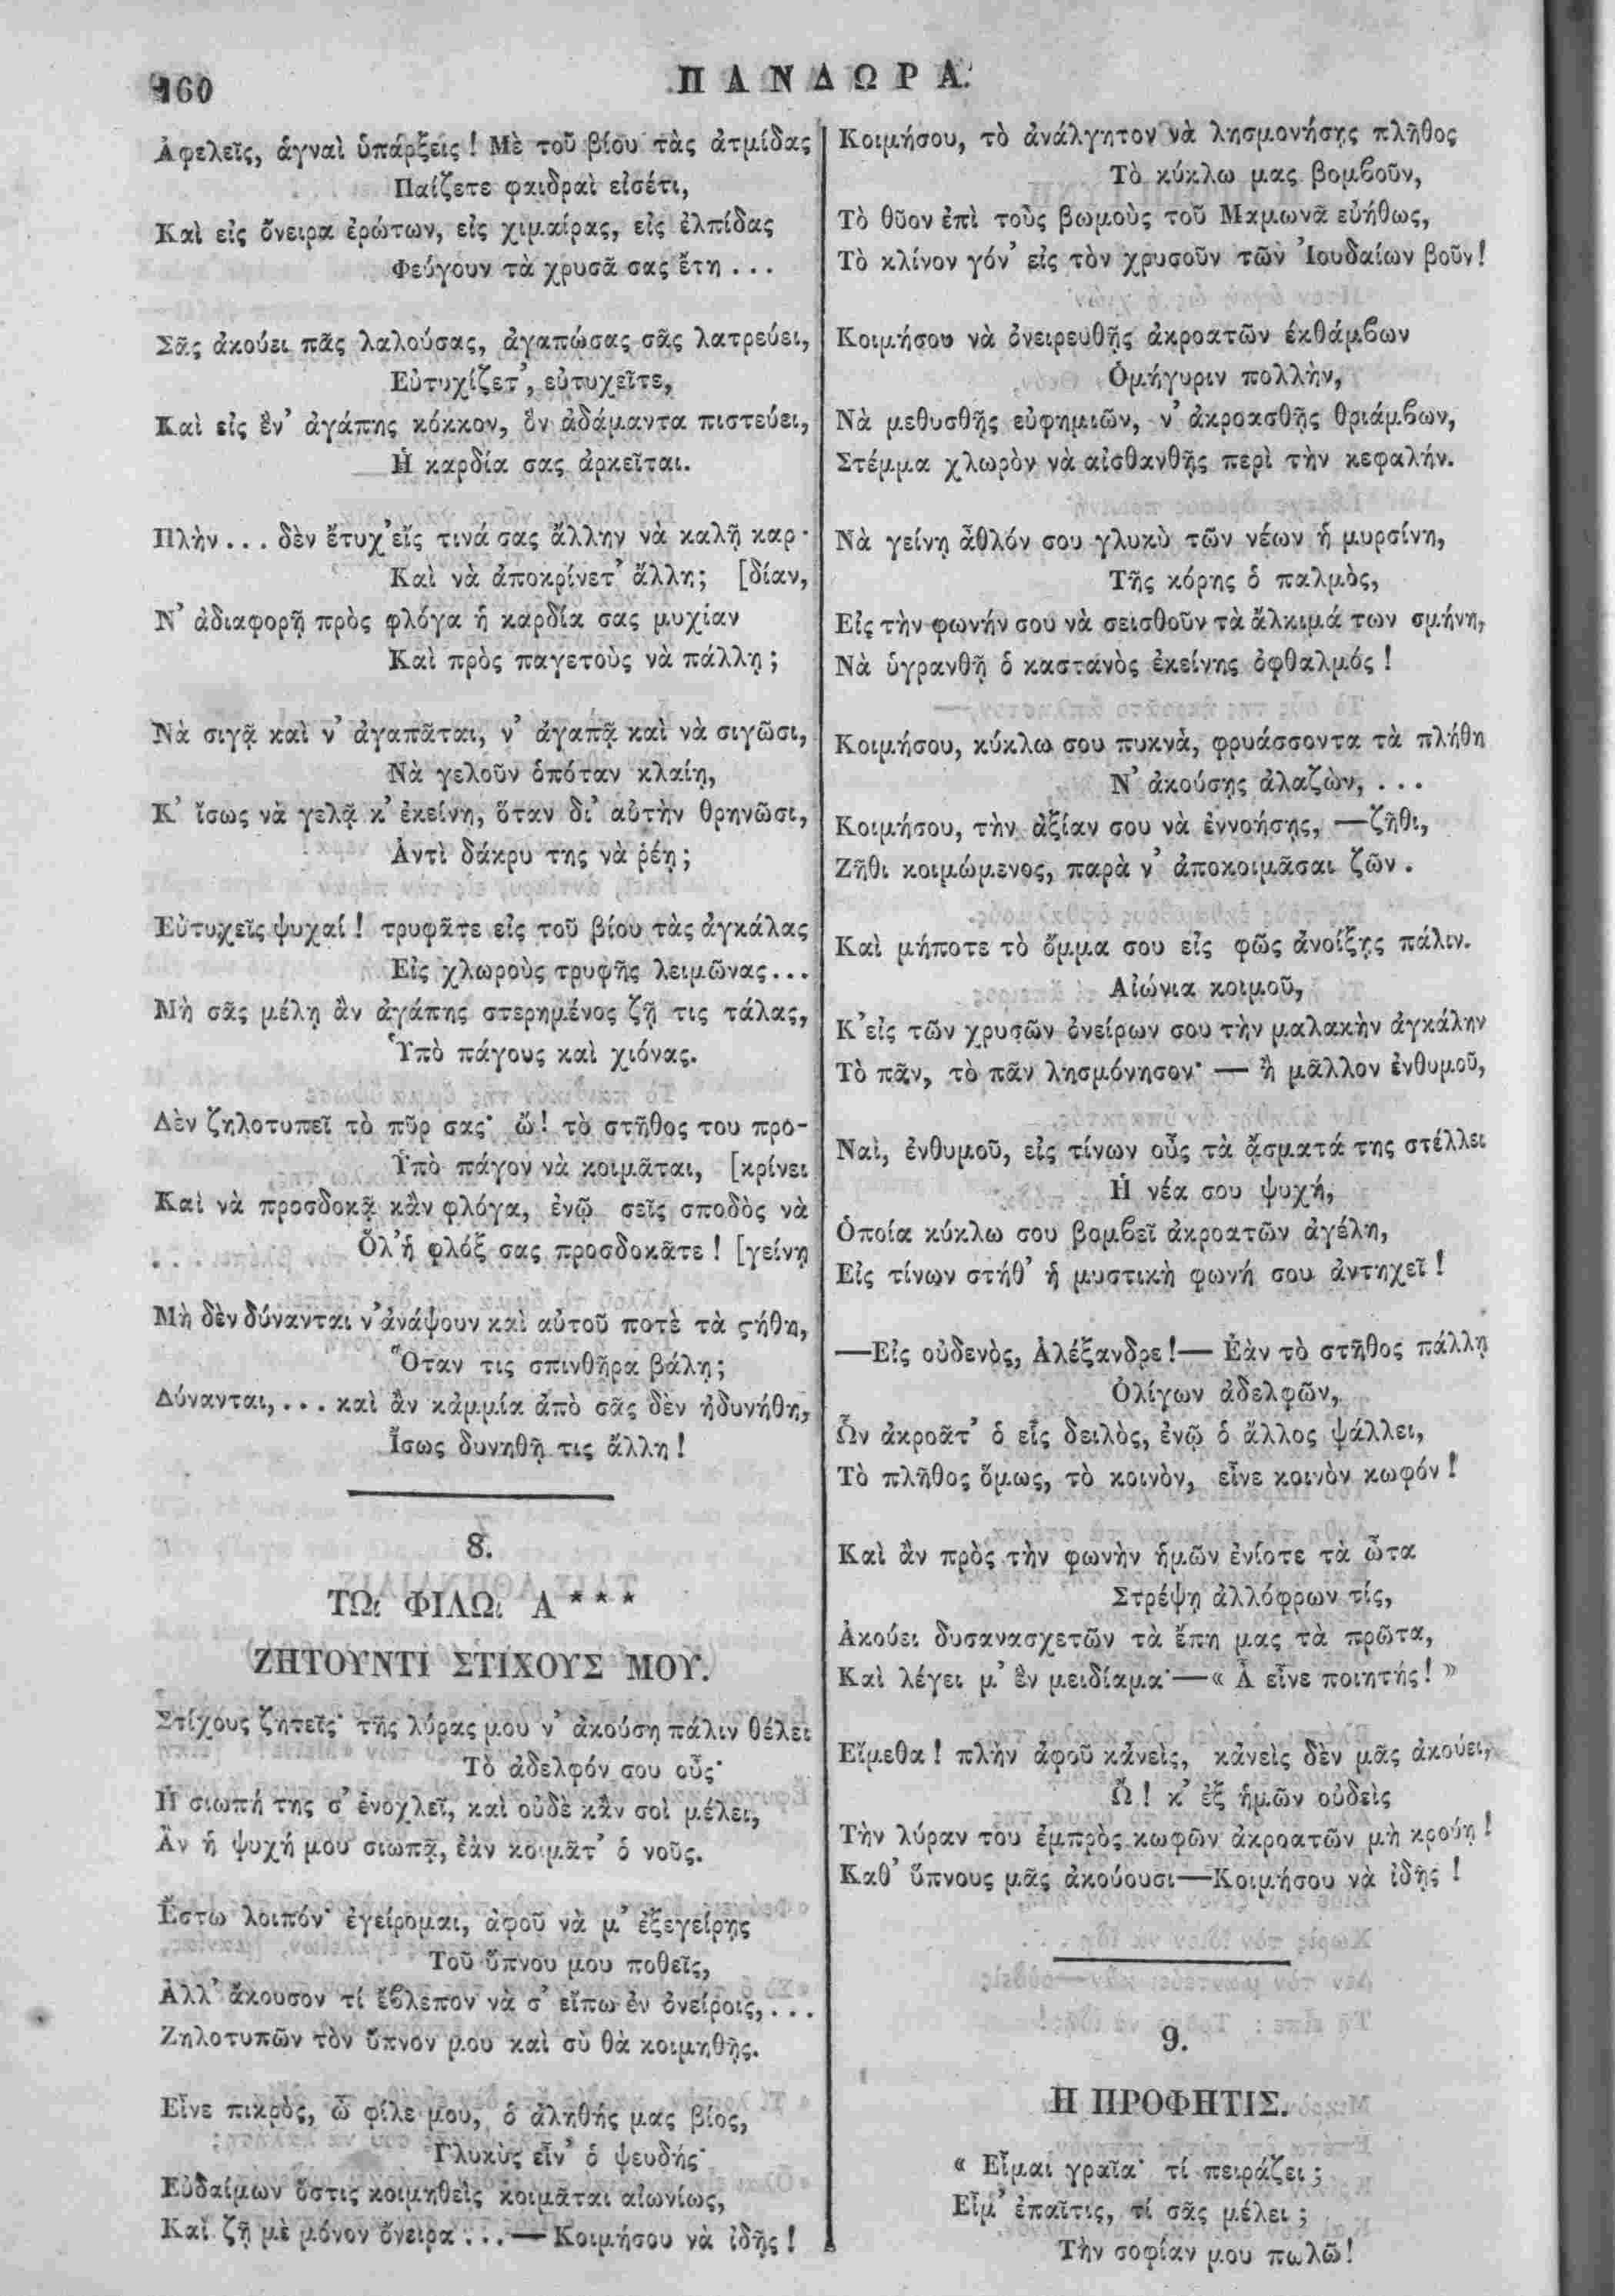 160
ΠΑΝΔΩΡΑ.
Ἀφελεῖς, ἁγναὶ ὑπάρξεις! Μὲ τοῦ βίου τὰς ἀτμίδας
Παίζετε φαιδραὶ εἰσέτι,
Καὶ εἰς ὄνειρα ἐρώτων, εἰς χιμαίρας, εἰς ἐλπίδας
Φεύγουν τὰ χρυσᾶ σας ἔτη...
Σᾶς ἀκούει πᾶς λαλούσας, ἀγαπώσας σᾶς λατρεύει,
Εὐτυχίζετ', εὐτυχεῖτε,
Καὶ εἰς ἕν' ἀγάπης κόκκον, ὃν ἀδάμαντα πιστεύει,
Ἡ καρδία σας ἀρκεῖται.
Πλὴν... δὲν ἔτυχ' εἴς τινά σας ἄλλην νὰ καλῇ καρ-
Καὶ νὰ ἀποκρίνετ' ἄλλη; [δίαν,
Ν' ἀδιαφορῇ πρὸς φλόγα ἡ καρδία σας μυχίαν
Καὶ πρὸς παγετοὺς νὰ πάλλῃ;
Νὰ σιγᾷ καὶ ν' ἀγαπᾶται, ν' ἀγαπᾷ καὶ νὰ σιγῶσι,
Νὰ γελοῦν ὁπόταν κλαίῃ,
Κ' ἴσως νὰ γελᾷ κ' ἐκείνη, ὅταν δι' αὐτὴν θρηνῶσι,
Ἀντὶ δάκρυ της νὰ ῥέῃ;
Εὐτυχεῖς ψυχαί! τρυφᾶτε εἰς τοῦ βίου τὰς ἀγκάλας
Εἰς χλωροὺς τρυφῆς λειμῶνας...
Μὴ σᾶς μέλῃ ἂν ἀγάπης στερημένος ζῇ τις τάλας,
Ὑπὸ πάγους καὶ χιόνας.
Δὲν ζηλοτυπεῖ τὸ πῦρ σας· ὤ! τὸ στῆθος του προ-
Ὑπὸ πάγον νὰ κοιμᾶται, [κρίνει
Καὶ νὰ προσδοκᾷ κἂν φλόγα, ἐνῷ σεῖς σποδὸς νὰ
Ὅλ' ἡ φλόξ σας προσδοκᾶτε! [γείνῃ
Μὴ δὲν δύνανται ν' ἀνάψουν καὶ αὐτοῦ ποτὲ τὰ στήθη,
Ὅταν τις σπινθῆρα βάλῃ;
Δύνανται,... καὶ ἂν κἀμμία ἀπὸ σᾶς δὲν ἠδυνήθη,
Ἴσως δυνηθῇ τις ἄλλη!
8.
ΤΩι ΦΙΛΩι Α***
ΖΗΤΟΥΝΤΙ ΣΤΙΧΟΥΣ ΜΟΥ.
Στίχους ζητεῖς· τῆς λύρας μου ν' ἀκούσῃ πάλιν θέλει
Τὸ ἀδελφόν σου οὖς·
Ἡ σιωπή της σ' ἐνοχλεῖ, καὶ οὐδὲ κἂν σοὶ μέλει,
Ἂν ἡ ψυχή μου σιωπᾷ, ἐὰν κοιμᾶτ' ὁ νοῦς.
Ἔστω λοιπόν· ἐγείρομαι, ἀφοῦ νὰ μ' ἐξεγείρῃς
Τοῦ ὕπνου μου ποθεῖς,
Ἀλλ' ἄκουσον τί ἔβλεπον νὰ σ' εἴπω ἐν ὀνείροις,...
Ζηλοτυπῶν τὸν ὕπνον μου καὶ σὺ θὰ κοιμηθῇς.
Εἶνε πικρὸς, ὦ φίλε μου, ὁ ἀληθής μας βίος,
Γλυκὺς εἶν' ὁ ψευδής·
Εὐδαίμων ὅστις κοιμηθεὶς κοιμᾶται αἰωνίως,
Καὶ ζῇ μὲ μόνον ὄνειρα...— Κοιμήσου νὰ ἰδῇς!
Κοιμήσου, τὸ ἀνάλγητον νὰ λησμονήσῃς πλῆθος
Τὸ κύκλω μας βομβοῦν,
Τὸ θῦον ἐπὶ τοὺς βωμοὺς τοῦ Μαμωνᾶ εὐήθως,
Τὸ κλίνον γόν' εἰς τὸν χρυσοῦν τῶν Ἰουδαίων βοῦν!
Κοιμήσου νὰ ὀνειρευθῇς ἀκροατῶν ἐκθάμβων
Ὁμήγυριν πολλὴν,
Νὰ μεθυσθῇς εὐφημιῶν, ν' ἀκροασθῇς θριάμβων,
Στέμμα χλωρὸν νὰ αἰσθανθῇς περὶ τὴν κεφαλήν.
Νὰ γείνῃ ἆθλόν σου γλυκὺ τῶν νέων ἡ μυρσίνη,
Τῆς κόρης ὁ παλμὸς,
Εἰς τὴν φωνήν σου νὰ σεισθοῦν τὰ ἄλκιμά των σμήνη,
Νὰ ὑγρανθῇ ὁ καστανὸς ἐκείνης ὀφθαλμός!
Κοιμήσου, κύκλω σου πυκνὰ, φρυάσσοντα τὰ πλήθη
Ν' ἀκούσῃς ἀλαζὼν,...
Κοιμήσου, τὴν ἀξίαν σου νὰ ἐννοήσῃς, —ζῆθι,
Ζῆθι κοιμώμενος, παρὰ ν' ἀποκοιμᾶσαι ζῶν.
Καὶ μήποτε τὸ ὄμμα σου εἰς φῶς ἀνοίξῃς πάλιν.
Αἰώνια κοιμοῦ,
Κ' εἰς τῶν χρυσῶν ὀνείρων σου τὴν μαλακὴν ἀγκάλην
Τὸ πᾶν, τὸ πᾶν λησμόνησον· — ἢ μᾶλλον ἐνθυμοῦ,
Ναὶ, ἐνθυμοῦ, εἰς τίνων οὖς τὰ ᾄσματά της στέλλει
Ἡ νέα σου ψυχή,
Ὁποία κύκλω σου βομβεῖ ἀκροατῶν ἀγέλη,
Εἰς τίνων στήθ' ἡ μυστικὴ φωνή σου ἀντηχεῖ!
—Εἰς οὐδενὸς, Ἀλέξανδρε!— Ἐὰν τὸ στῆθος πάλλῃ
Ὀλίγων ἀδελφῶν,
Ὧν ἀκροᾶτ' ὁ εἷς δειλὸς, ἐνῷ ὁ ἄλλος ψάλλει,
Τὸ πλῆθος ὅμως, τὸ κοινὸν, εἶνε κοινὸν κωφόν!
Καὶ ἂν πρὸς τὴν φωνὴν ἡμῶν ἐνίοτε τὰ ὦτα
Στρέψῃ ἀλλόφρων τίς,
Ἀκούει δυσανασχετῶν τὰ ἔπη μας τὰ πρῶτα,
Καὶ λέγει μ' ἓν μειδίαμα·—« Ἆ εἶνε ποιητής! »
Εἴμεθα! πλὴν ἀφοῦ κἀνεὶς, κἀνεὶς δὲν μᾶς ἀκούει,
Ὤ! κ' ἐξ ἡμῶν οὐδεὶς
Τὴν λύραν του ἐμπρὸς κωφῶν ἀκροατῶν μὴ κρούῃ!
Καθ' ὕπνους μᾶς ἀκούουσι—Κοιμήσου νὰ ἰδῇς!
9.
Η ΠΡΟΦΗΤΙΣ.
« Εἶμαι γραῖα· τί πειράζει;
Εἶμ' ἐπαῖτις, τί σᾶς μέλει;
Τὴν σοφίαν μου πωλῶ!